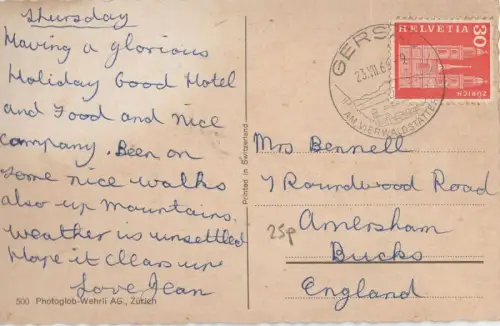 Thursday
Having a glorious
Holiday Good Hotel
and Food and nice
company. Been on
some nice walks
also up mountains.
weather is unsettled
Hope it clears up
Love Jean
500 Photoglob-Wehrli AG., Zürich
Printed in Switzerland
GERSAU
23.VII.
AM VIERWALDSTÄTTER
HELVETIA
80
ZÜRICH
Mrs Bennell
7 Roundwood Road
Amersham
Bucks
England
25p